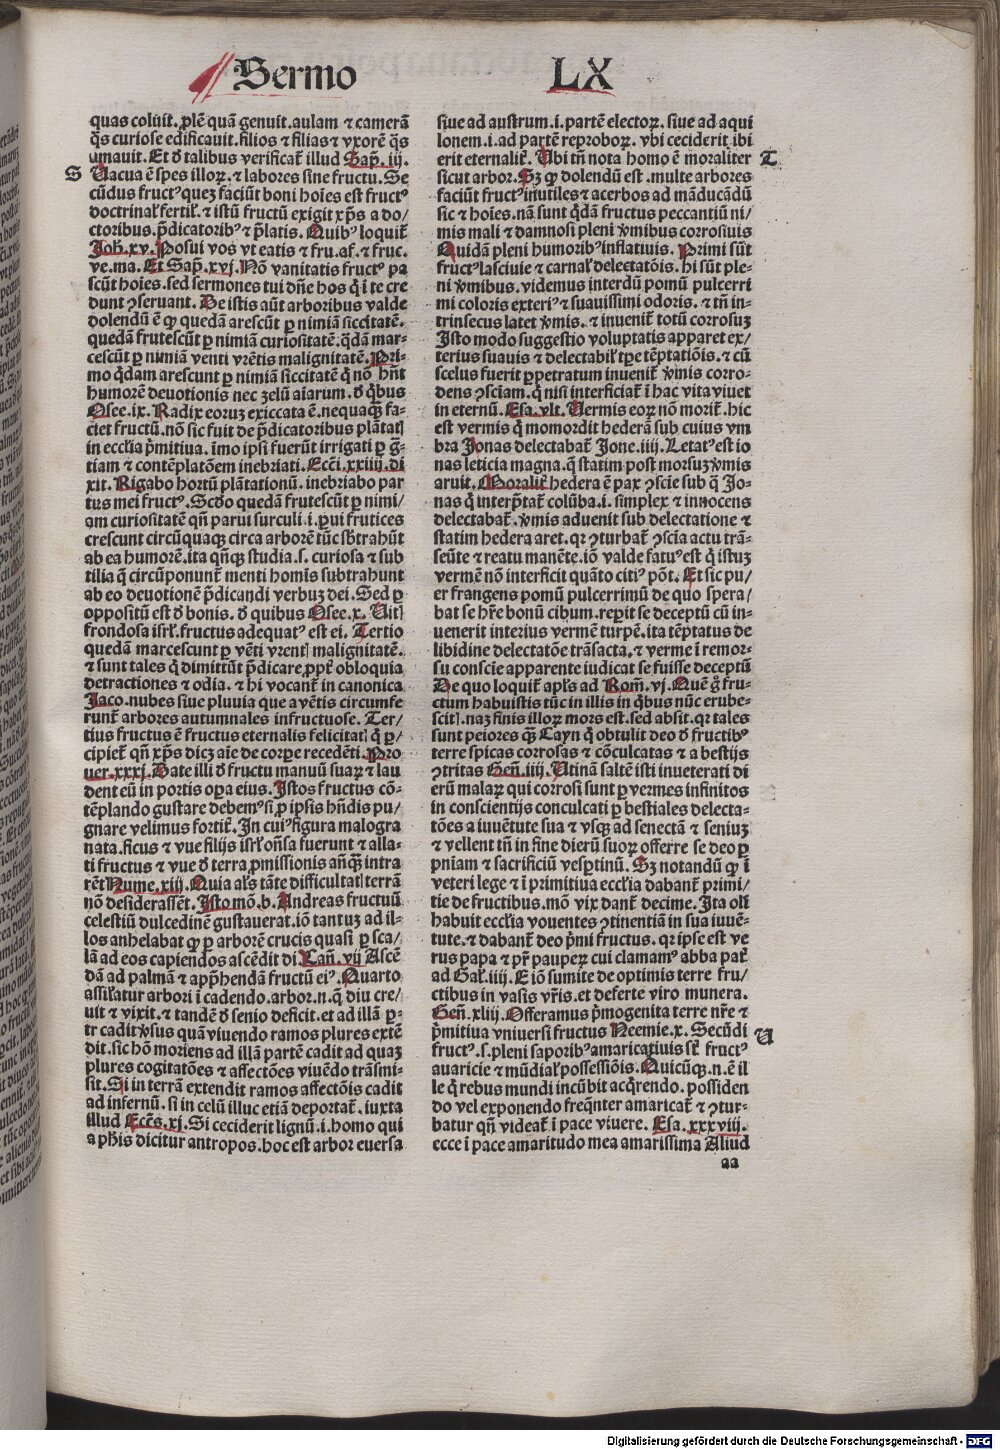 Sermo LX
quas coluit. ꝓlē quā genuit. aulam ⁊ camerā
q̄s curiose edificauit. filios ⁊ filias ⁊ vxorē q̄s
amauit. Et ď talibus verificat᷑ illud Sap̄. iij.
S
Uacua ē spes illoꝝ. ⁊ labores sine fructu. Se
cūdus fructꝰ quez faciūt boni hoīes est fructꝰ
doctrinał fertił. ⁊ istū fructū exigit xp̄s a do/
ctoribus. p̄dicatoribꝰ ⁊ p̄latis. Quibꝰ loquit᷑
Joh̄. xv. Posui vos vt eatis ⁊ fru. af. ⁊ fruc.
ve. ma. Et Sap̄. xvj. Nō vanitatis fructꝰ pa
scūt hoīes. sed sermones tui dn̄e hos q̄ ī te cre
dunt ꝯseruant. De istis aūt arboribus valde
dolendū ē ꝙ quedā arescūt ꝑ nimiā siccitatē.
quedā frutescūt ꝑ nimiā curiositatē. q̄dā mar-
cescūt ꝑ nimiā venti vrētis malignitatē. Pri-
mo q̄dam arescunt ꝑ nimiā siccitatē q̄ nō hn̄t
humorē deuotionis nec zelū aīarum. ď q̄bus
Osee. ix. Radix eoruz exiccata ē. nequaq̄ȝ fa-
ciet fructū. nō sic fuit de p̄dicatoribus plātat
in eccl̄ia p̄mitiua. īmo ipsi fuerūt irrigati ꝑ ḡ-
tiam ⁊ contēplatōem inebriati. Ecc̄i. xxiiij. di
xit. Rigabo hortū plātationū. inebriabo par
tus mei fructꝰ. Scďo quedā frutescūt ꝑ nimi/
am curiositatē qn̄ parui surculi .i. ꝑui frutices
crescunt circūquaqȝ circa arborē tūc sb̄trahūt
ab ea humorē. ita qn̄qȝ studia .s. curiosa ⁊ sub
tilia q̄ circūponunt᷑ menti homīs subtrahunt
ab eo deuotionē p̄dicandi verbuz dei. Sed ꝑ
oppositū est ď bonis. ď quibus Osee. x. Uit
frondosa isrł. fructus adequatꝰ est ei. Tertio
quedā marcescunt ꝑ vēti vrent malignitatē.
⁊ sunt tales q̄ dimittūt p̄dicare ꝓpt᷑ obloquia
detractiones ⁊ odia. ⁊ hi vocant᷑ in canonica
Jaco. nubes siue pluuia que a vētis circumfe
runt᷑ arbores autumnales infructuose. Ter/
tius fructus ē fructus eternalis felicitat q̄ ꝑ/
cipiet᷑ qn̄ xp̄s dicȝ aīe de corꝑe recedēti. Pro
uer. xxxj. Date illi ď fructu manuū suaꝝ ⁊ lau
dent eū in portis oꝑa eius. Istos fructus cō-
tēplando gustare debemꝰ si ꝓ ipsis hn̄dis pu/
gnare velimus fortit᷑. In cuiꝰ figura malogra
nata. ficus ⁊ vue filijs isrł on̄sa fuerunt ⁊ alla-
ti fructus ⁊ vue ď terra ꝓmissionis an̄q̄ȝ intra
rēt Nume. xiij. Quia al̄s tāte difficultat terrā
nō desiderassēt. Isto mō. b. Andreas fructuū
celestiū dulcedinē gustauerat. iō tantuz ad il-
los anhelabat ꝙ ꝑ arborē crucis quasi ꝑ sca/
lā ad eos capiendos ascēdit di. Cañ. vij Ascē
dā ad palmā ⁊ app̄hendā fructū eiꝰ. Quarto
assil̄atur arbori ī cadendo. arbor. n. q̄ diu cre/
uit ⁊ vixit. ⁊ tandē ď senio deficit. et ad illā ꝑ-
tē cadit v̓sus quā viuendo ramos plures extē
dit. sic hō moriens ad illā partē cadit ad quaȝ
plures cogitatōes ⁊ affectōes viuēdo trāsmi-
sit. Si in terrā extendit ramos affectōis cadit
ad infernū. si in celū illuc etiā deportat᷑. iuxta
illud Ecc̄s. xj. Si ceciderit lignū .i. homo qui
a ph̄is dicitur antropos. hoc est arbor euersa
siue ad austrum .i. partē electoꝝ. siue ad aqui
lonem .i. ad partē reproboꝝ. vbi ceciderit ibi
erit eternalit᷑. Ubi tn̄ nota homo ē moraliter
T
sicut arbor. Sȝ ꝙ dolendū est. multe arbores
faciūt fructꝰ inutiles ⁊ acerbos ad māducādū
sic ⁊ hoīes. nā sunt q̄dā fructus peccantiū ni/
mis mali ⁊ damnosi pleni v̓mibus corrosiuis
Quidā pleni humoribꝰ inflatiuis. Primi sūt
fructꝰ lasciuie ⁊ carnał delectatōis. hi sūt ple-
ni v̓mibus. videmus interdū pomū pulcerri
mi coloris exteriꝰ ⁊ suauissimi odoris. ⁊ tn̄ in-
trinsecus latet v̓mis. ⁊ inuenit᷑ totū corrosuz
Isto modo suggestio voluptatis apparet ex/
terius suauis ⁊ delectabił tꝑe tēptatiōis. ⁊ cū
scelus fuerit ꝑpetratum inuenit᷑ v̓mis corro-
dens ꝯsciam. q̄ nisi interficiat᷑ ī hac vita viuet
in eternū. Esa. vlt. Uermis eoꝝ nō morit᷑. hic
est vermis q̄ momordit hederā sub cuius vm
bra Jonas delectabat᷑ Jone. iiij. Letatꝰ est io
nas leticia magna. q̄ statim post morsuȝ v̓mis
aruit. Moralit᷑ hedera ē pax ꝯscie sub q̄ Jo-
nas q̄ interp̄tat᷑ colūba .i. simplex ⁊ innocens
delectabat᷑. v̓mis aduenit sub delectatione ⁊
statim hedera aret. qr ꝯturbat᷑ ꝯscia actu trā-
seūte ⁊ reatu manēte. iō valde fatuꝰ est q̄ istuȝ
vermē nō interficit quāto citiꝰ pōt. Et sic pu/
er frangens pomū pulcerrimū de quo spera/
bat se hr̄e bonū cibum. reꝑit se deceptū cū in-
uenerit interius vermē turpē. ita tēptatus de
libidine delectatōe trāsacta. ⁊ verme ī remor-
su conscie apparente iudicat se fuisse deceptū
De quo loquit᷑ apl̄s ad Rom̄. vj. Quē g̊ fru-
ctum habuistis tūc in illis in q̄bus nūc erube-
scit. naȝ finis illoꝝ mors est. sed absit. qr tales
sunt peiores q̄ȝ Cayn q̄ obtulit deo ď fructibꝰ
terre spicas corrosas ⁊ cōculcatas ⁊ a bestijs
ꝯtritas Geñ. iiij. Utinā saltē isti inueterati di
erū malaꝝ qui corrosi sunt ꝑ vermes infinitos
in conscientijs conculcati ꝑ bestiales delecta-
tōes a iuuētute sua ⁊ vsqȝ ad senectā ⁊ seniuȝ
⁊ vellent tn̄ in fine dierū suoꝝ offerre se deo ꝑ
pn̄iam ⁊ sacrificiū vesꝑtinū. Sȝ notandū ꝙ ī
veteri lege ⁊ ī primitiua eccl̄ia dabant᷑ primi/
tie de fructibus. mō vix dant᷑ decime. Ita olī
habuit eccl̄ia vouentes ꝯtinentiā in sua iuuē-
tute. ⁊ dabant᷑ deo p̄mi fructus. qr ipse est ve
rus papa ⁊ pr̄ pauperȝ cui clamamꝰ abba pat᷑
ad Gał. iiij. E iō sumite de optimis terre fru/
ctibus in vasis vr̄is. et deferte viro munera.
Geñ. xliij. Offeramus p̄mogenita terre nr̄e ⁊
p̄mitiua vniuersi fructus Neemie. x. Secūdi
U
fructꝰ .s. pleni saporibꝰ amaricatiuis st᷑ fructꝰ
auaricie ⁊ mūdiał possessiōis. Quicūqȝ. n. ē il
le q̄ rebus mundi incūbit acq̄rendo. possiden
do vel exponendo freq̄nter amaricat᷑ ⁊ ꝯtur-
batur qn̄ videat᷑ ī pace viuere. Esa. xxxviij.
ecce ī pace amaritudo mea amarissima Aliud
aa
Digitalisierung gefördert durch die Deutsche Forschungsgemeinschaft - DFG